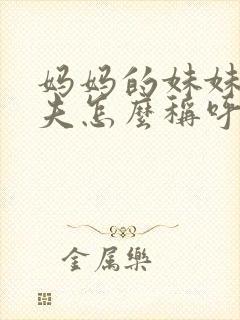 妈妈的妹妹
夫怎麼稱呼
金属樂